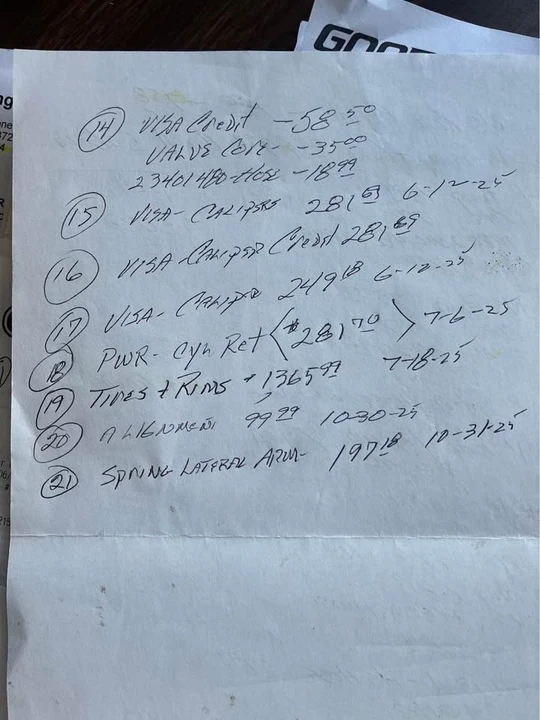 GOO
(14) VISA Credit -58 50
VALVE CORE- -35 00
23401480-HOSE -18 99
(15) VISA-CALIPERS 281 69 6-12-25
(16) VISA-CALIPER Credit 281 69
(17) VISA-CALIPER 249 18 6-12-25
(18) PWR-Cyh Ret <$281 70> 7-6-25
(19) TIRES & RIMS 1365 99 7-18-25
(20) ALIGNMENT 99 99 10-30-25
(21) SPRING LATERAL ARM- 197 18 10-31-25